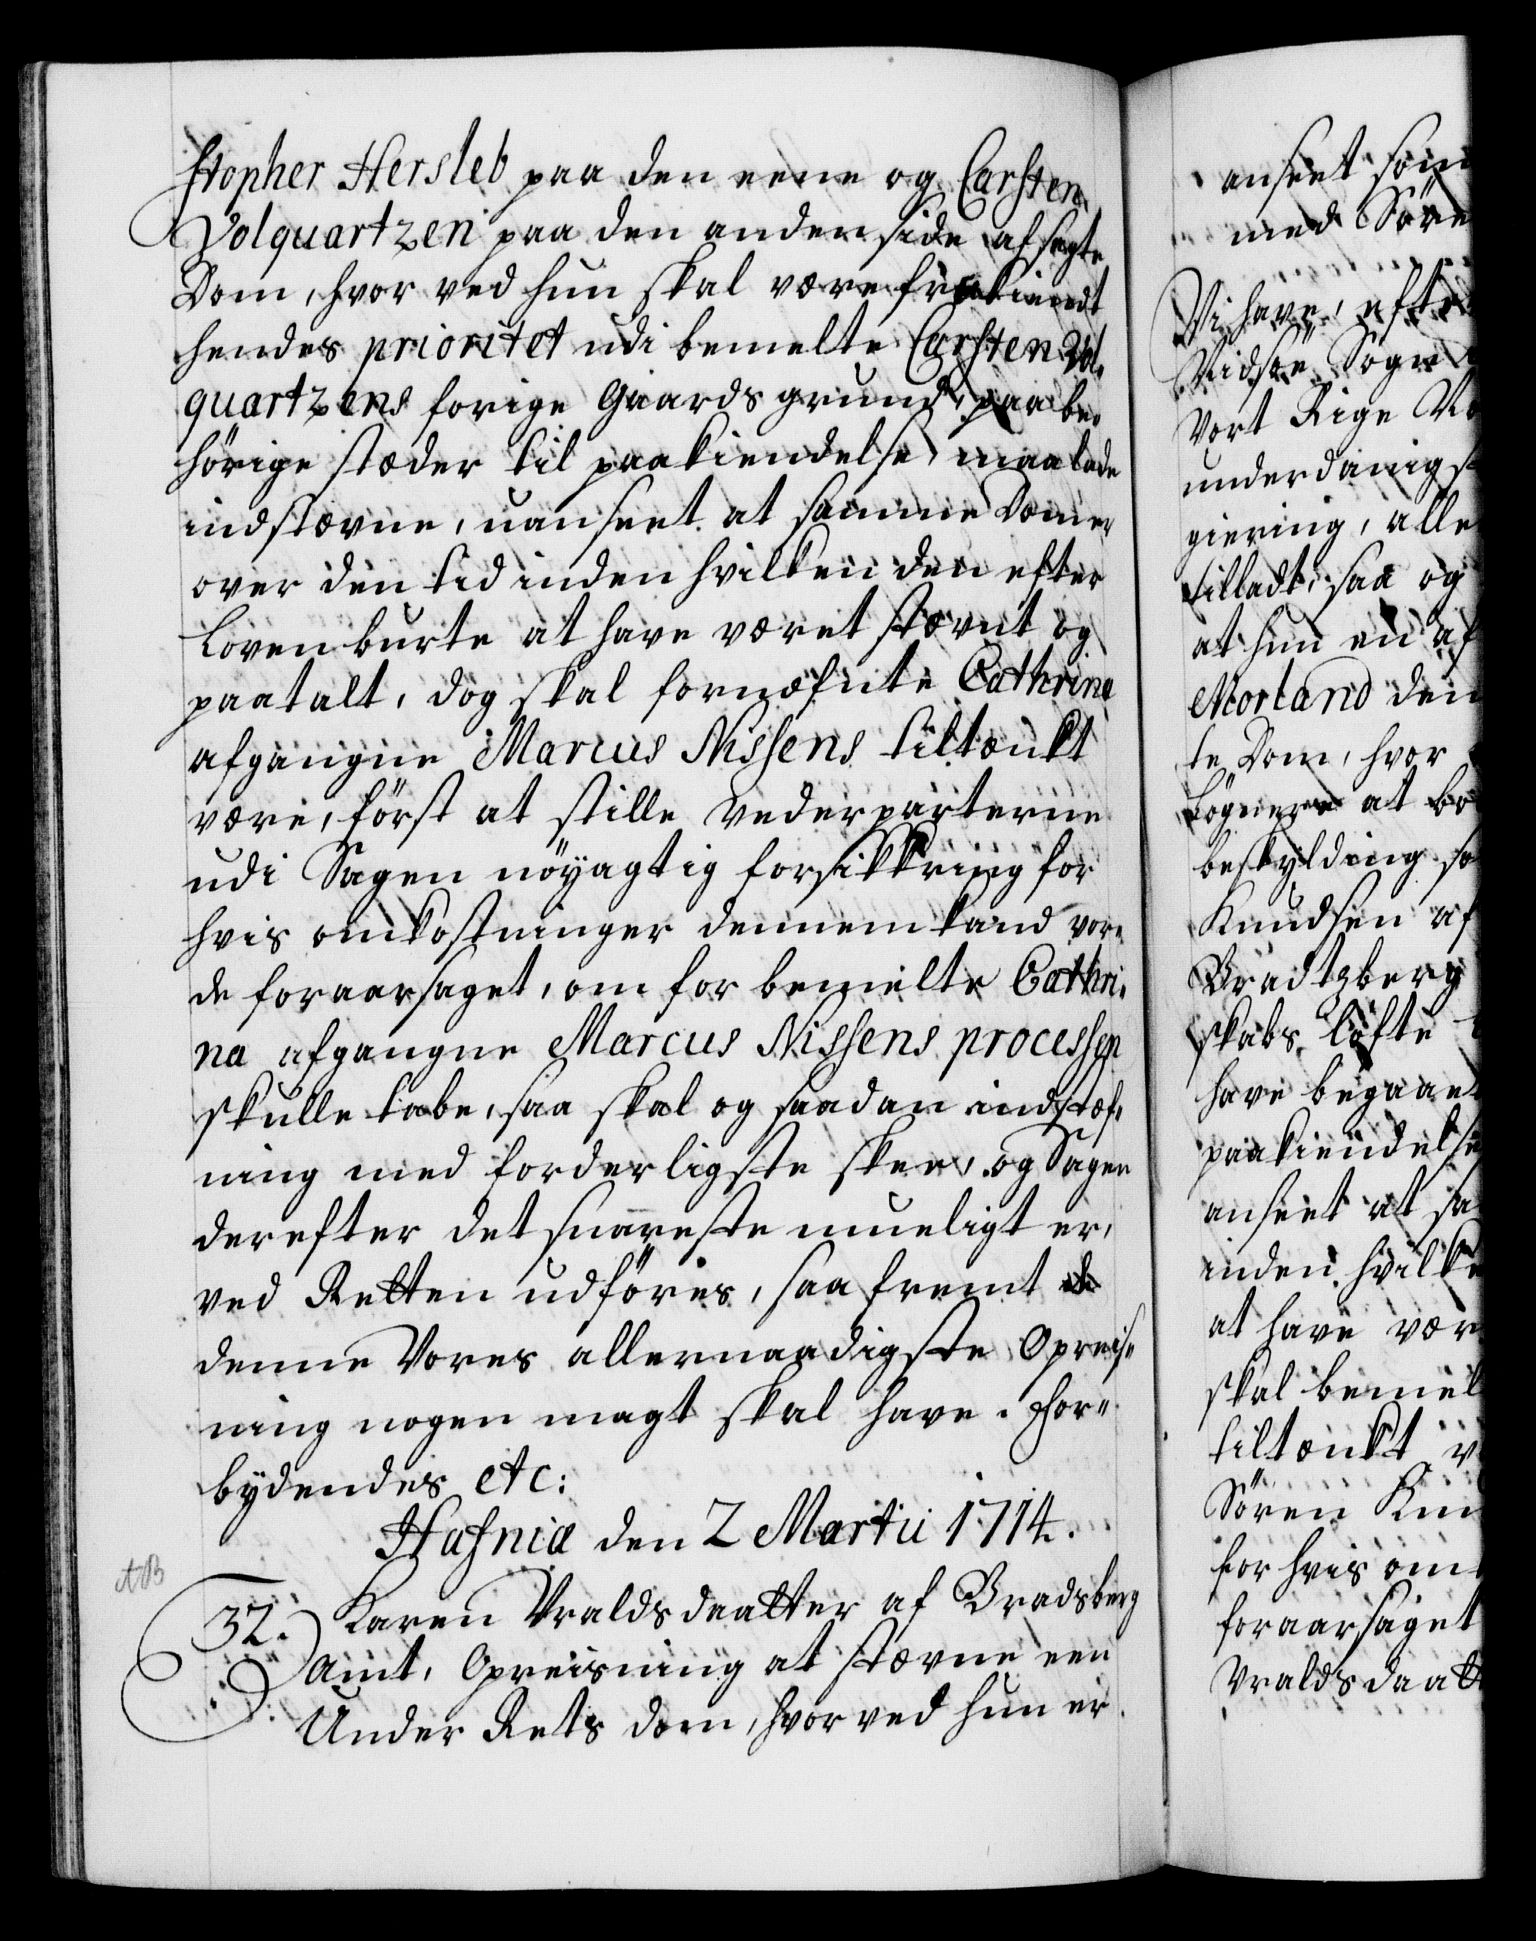 stopher Hersleb paa den eene og Carsten
Volquartzen paa den anden side afsagte
Dom, hvor ved hun skal være frakiendt
hendes prioritet udi bemelte Carsten Vol,
quartzens forige Gaards grund, paa be,
hörige stæder til paakiendelse maa lade
indstævne, uanseet at samme Dom er
over den tid inden hvilken den efter
Loven burte at have været stævnt og
paatalt, dog skal fornæfnte Cathrina
afgangne Marcus Nissens tiltænkt
være, först at stille vederparterne
udi Sagen nöyagtig forsikkring for
hvis omkostninger dennem kand vor,
de foraarsaget, om for bemelte Cathri,
na afgangne Marcus Nissens processen
skulle tabe, saa skal og saadan indstæf,
ning med forderligste skee, og Sagen
derefter det snareste mueligt er,
ved Retten udföres, saa fremt
denne Vores allernaadigste Opreis,
ning nogen magt skal have. For,,
bydendes etc:
Hafniæ den 2 Martii 1714.
AB
32. Karen Vraldsdaatter af Bradsberg
Amt, Opreisning at stævne een
Under Rets dom, hvorved hun er
anseet som
med Söre
Vi have, efter
Vidsöe Sogn
Vort Rige No
underdanigst
giering, aller
tilladt, saa og
at hun en af
Morland den
te Dom, hvor
Lögnere at bö
beskylding so
Knudsen af
Bradtzberg
skabs löfte
have begaaet
paakiendelse
anseet at sa
inden hvilke
at have vær
skal bemel
tiltænkt v
Sören Knu
for hvis om
foraarsaget
Vraldsdaatt